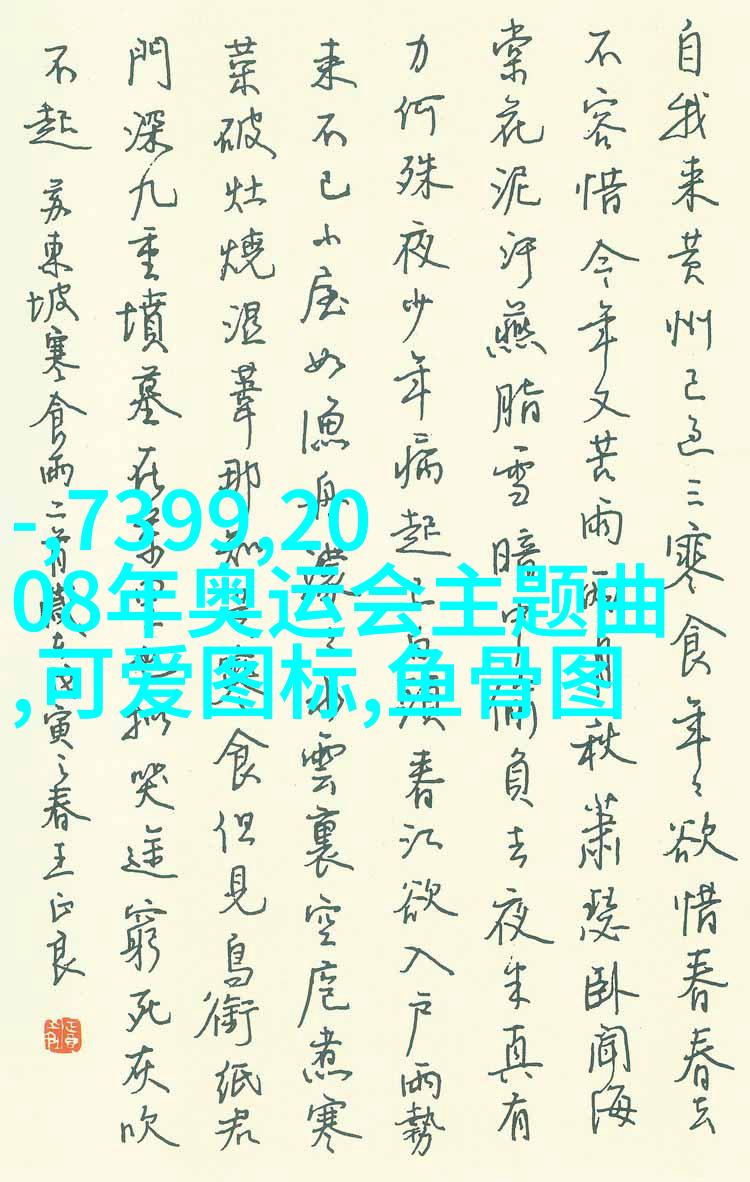 自我来黄州已过三寒食年々欲惜春春去
不容惜今年又苦雨两月秋蕭瑟卧闻海
棠花泥汙燕脂雪暗中偷負去夜半真有
力何殊夜少年病起白须春江欲入户雨勢
来不已小屋如漁舟濛々水雲裏空庖煮寒
菜破灶燒湿葦那知是寒食但見烏銜纸君
門深九重墳墓在万里也拟哭途窮死灰吹
不起 苏東坡寒食雨二首歲在戊寅之春王正良
-,7399,20
08年奥运会主题曲
,可爱图标,鱼骨图